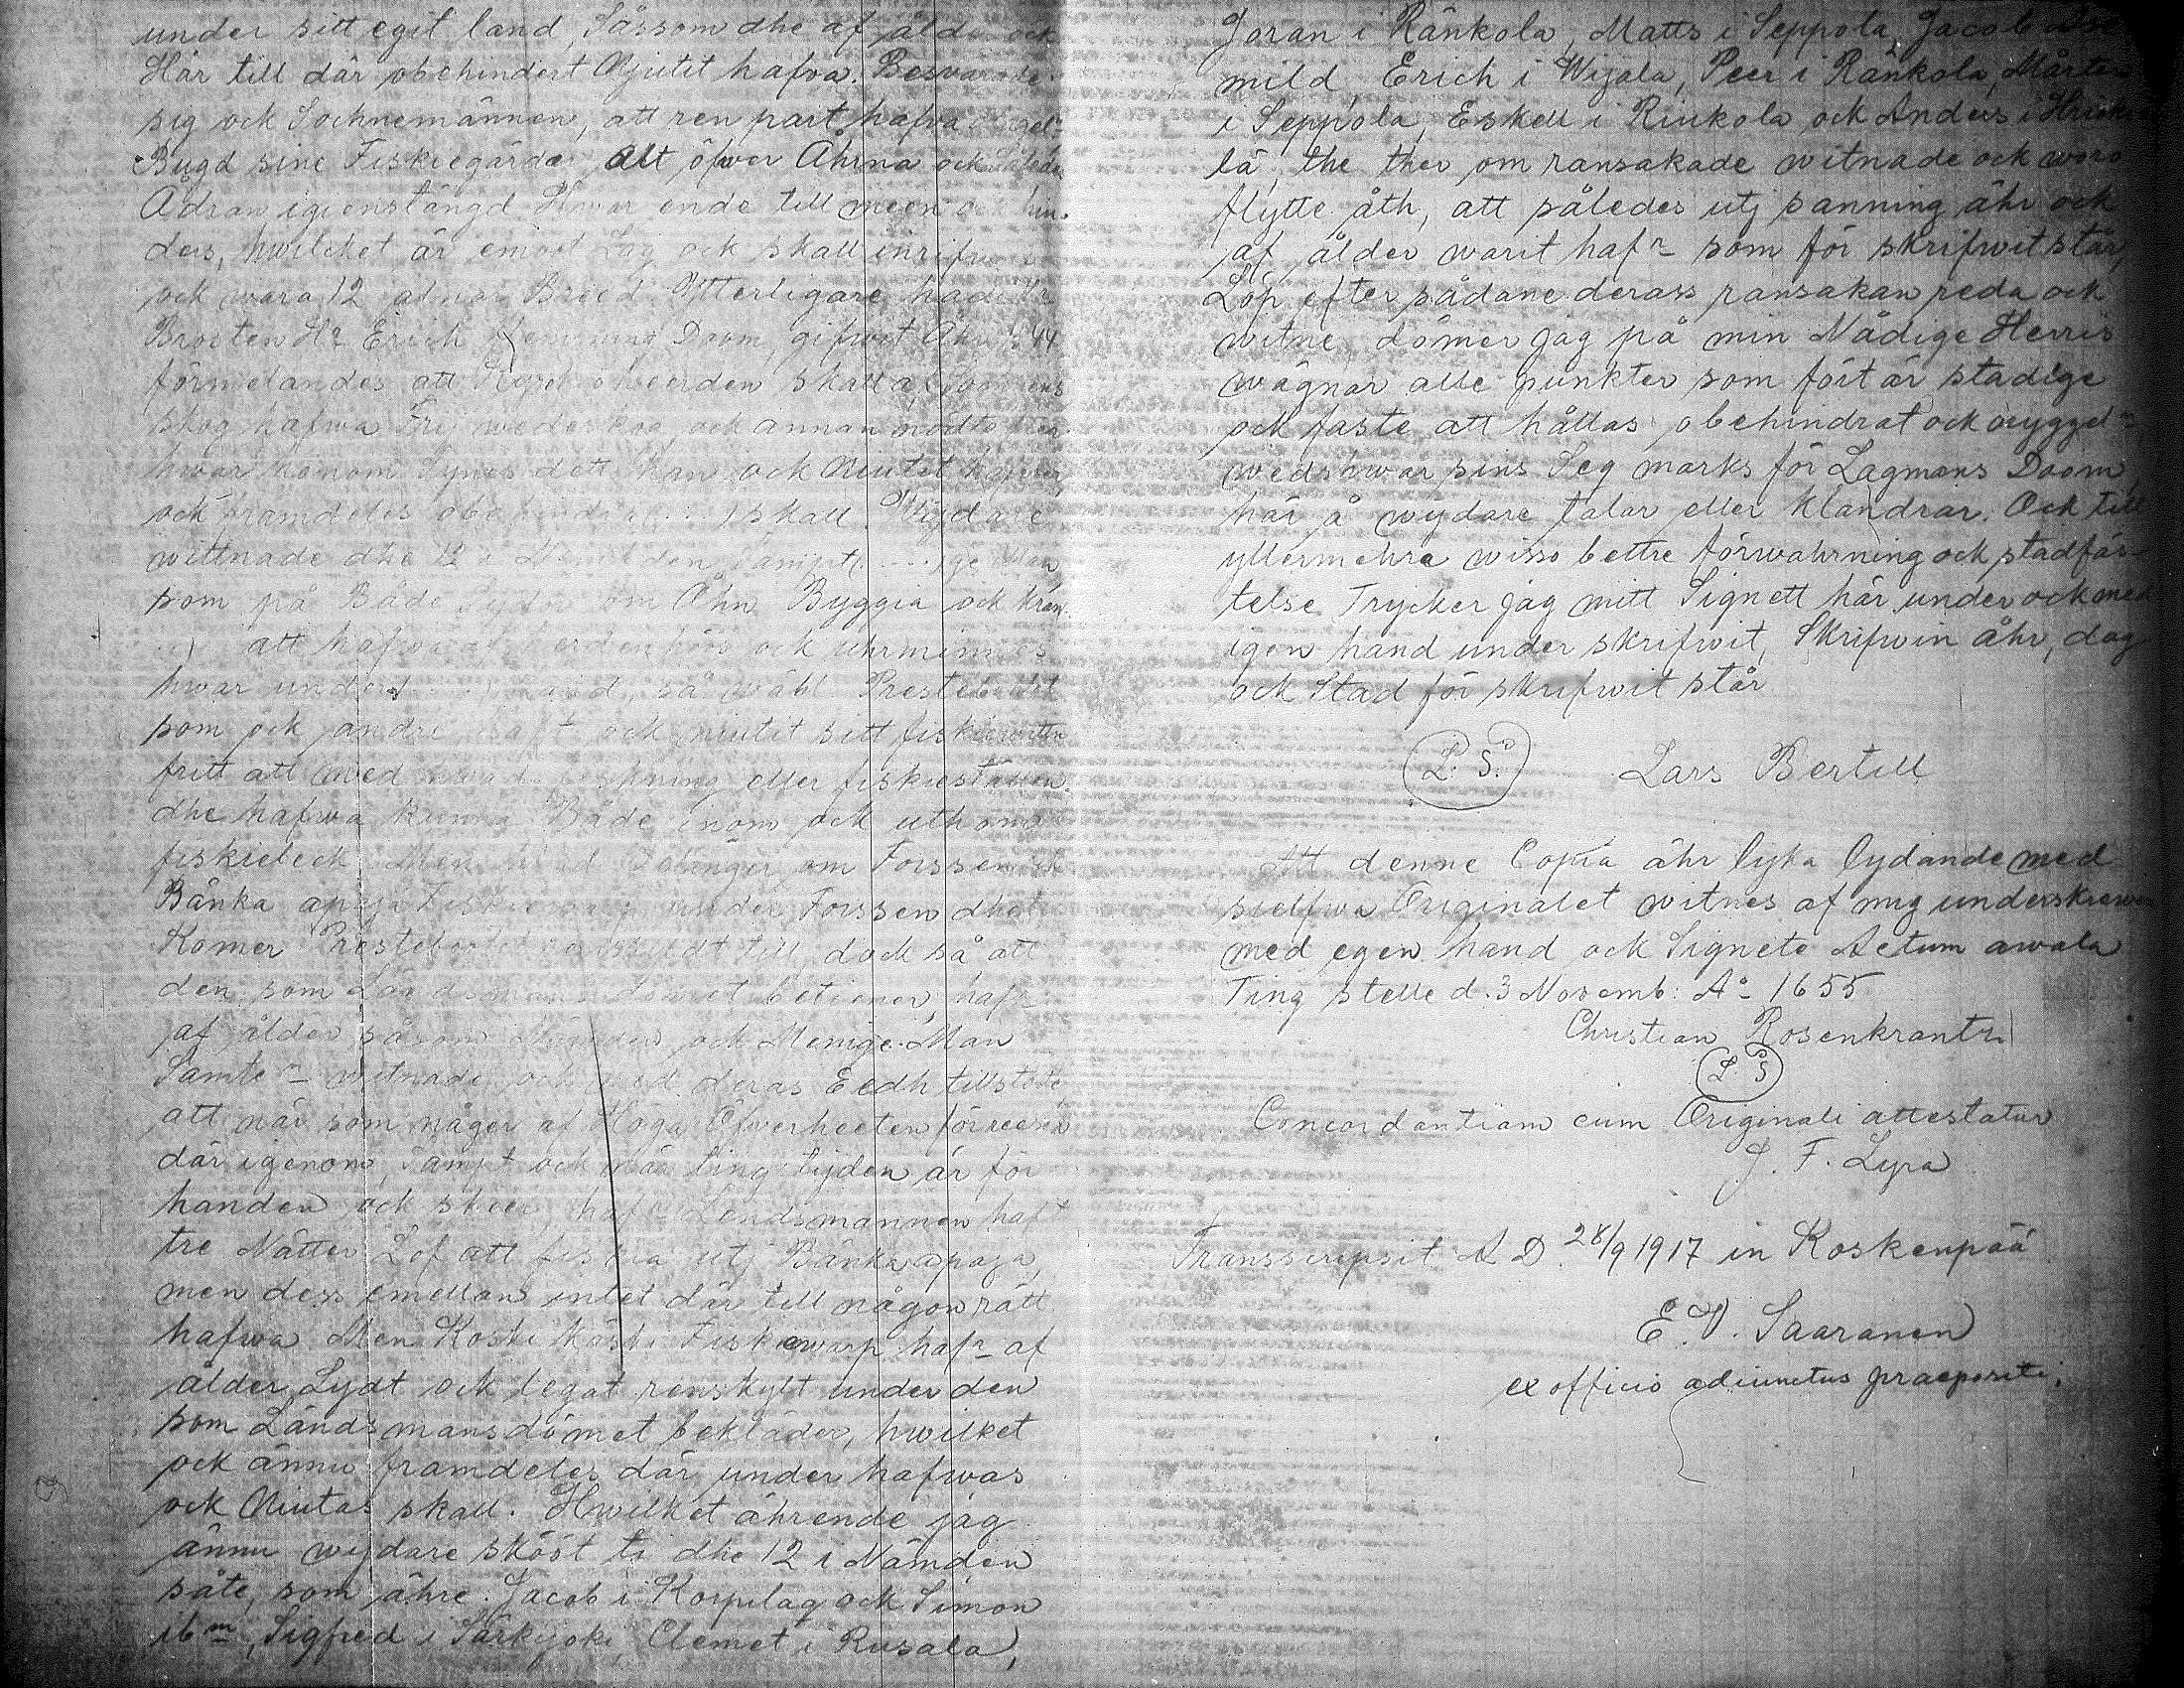 under sitt egit land, Såssom dhe af ålder och
Här till där obehindert Njutit hafva. Besvärade
sig ock Sochnemännen, att ren part hafva
Bygd sine Fiskiegårdar alt öfwer Åhrna ock
Ådran igienstängd Hwar ende till meen ock hin-
ders, hwilcket är emoot Lag ock skall inrifwa
ock wara 12 alnar Bried. Ytterligare hade
Brosten Hr Erich Flemming Doom, gifwet Åhr 44
förmelandes att heerden skall af
skog hafwa Fri wedeskog, ock annan nödto
hwar honom Synes dett han ock Niutit hafwer,
ock framdeles skall. Wijdare
wittnade dhe 12 i sampt ... ge Man
som på Både Sydor om Åhn Byggia ock
att hafwa af ock uhrminnes
hwar under så wähl Prestebordet
som ock andre haft ock niutit sitt fiskiewatten
fritt att med hwad fiskning eller fiskieställer
dhe hafwa kunna Både inom ock uthom
fiskieleek Men hwad belanger om Forssen
Bänka apaja Fiskiewarp under Forssen dhet
Komer Prestebordet enskyldt till, dock så att
den som Ländsmans dömet betiener, hafr
af ålder såsom Nämden ock Menige Man
Samte witnade ock med deras Eedh tillstode
att när som någer af Höga Öfwerheeten förreesa
där igenom, sampt ock när ting tijden är för
handen ock skeer, hafr Lendsmannen haft
tre Nätter Lof att fiskia utj Bänka apaja,
men dess emellan intet där till någon rätt
hafwa. Men Koski Kaski Fiskiewarp hafr af
ålder Lydt ock legat renskylt under den
som Ländsmansdömet bekläder, hwilket
ock ännu framdeles där under hafwas
ock Niutas skall. Hwilket ährende jag
ännu wijdare skööt ti dhe 12 i Nämden
såte, som ähre. Jacob i Korpilag ock Simon
ibm, Sigfred i Särkijoki, Clemet i Rusala,
Joran i Ränkola, Matts i Seppola, Jacob
mild, Erich i Wijala, Peer i Ränkola, Mårten
i Seppola, Eskell i Rinkola ock Anders i
lä, the ther om ransakade witnade ock woro
flytte åth, att således utj sanning ähr ock
af ålder warit hafr som för skrifwit står,
Lop efter sådane derass ransakan reda ock
witne, dömer jag på min Nådige Herris
wägnar alle punkter som fört är stadige
ock faste att hållas obehindrat ock oryggel
weds hwar sins Seg marks för Lagmans Doom,
här å wydare talar eller klandrar. Ock till
yttermehra wisso bettre förwahrning ock stadfäs-
telse Trycker jag mitt Signett här under ock med
igen hand under skrifwit, Skrifwin åhr, dag
ock Stad för skrifwit står
L. S. Lars Bertill
Att denne Copia ähr lyka lydande med
sielfwa Originalet witnes af mig underskrewen
med egen hand ock Signete Actum awala
Ting stelle d. 3 Novemb: Ao 1655
Christian Rosenkrantz
L S
Concordantiam cum Originali attestatur
J. F. Lyra
Transscripsit A D. 28/9 1917 in Koskenpää
E. V. Saaranen
ex officio adiunctus praepositi.